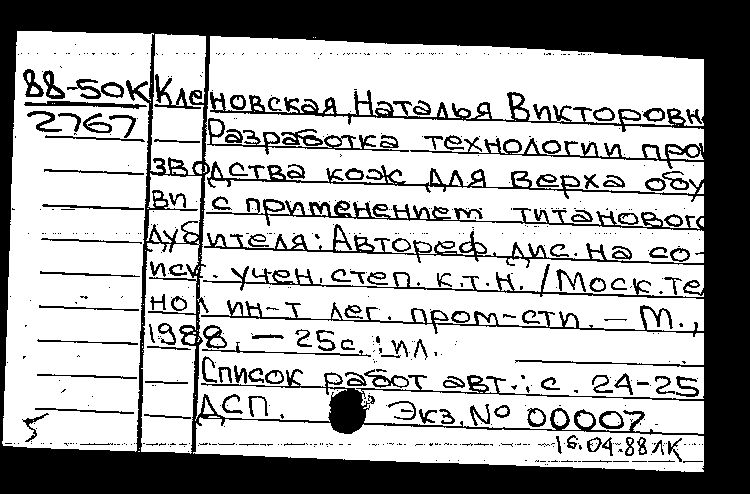 88-50К Кленовская, Наталья Викторовн
2767 Разработка технологии про
зводства кож для верха обу
ви с применением титанового
дубителя: Автореф. дис. на со-
иск. учен. степ. к.т.н. / Моск. те
нол ин-т лег. пром-сти. — М.,
1988. — 25с.: ил.
Список работ авт.: с. 24-25
ДСП. Экз. № 00007.
5 16.04.88 ЛК